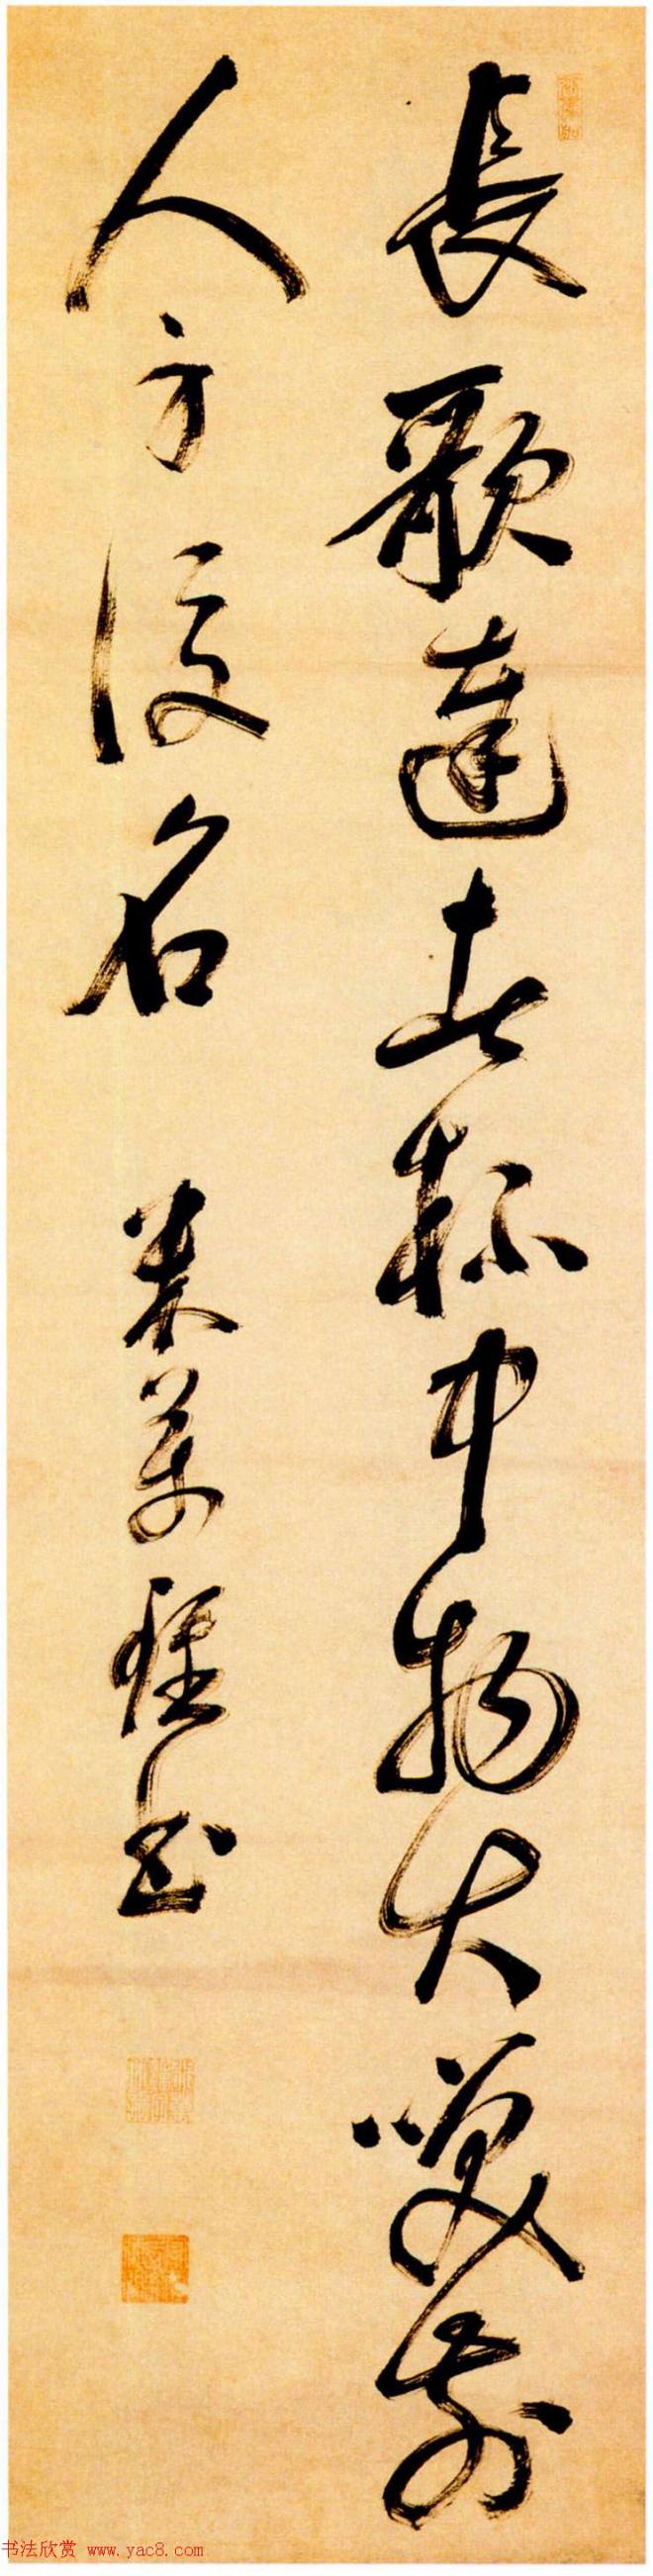 長歌達者杯中物大笑前
人身後名 米萬鍾書
书法欣赏 www.yac8.com